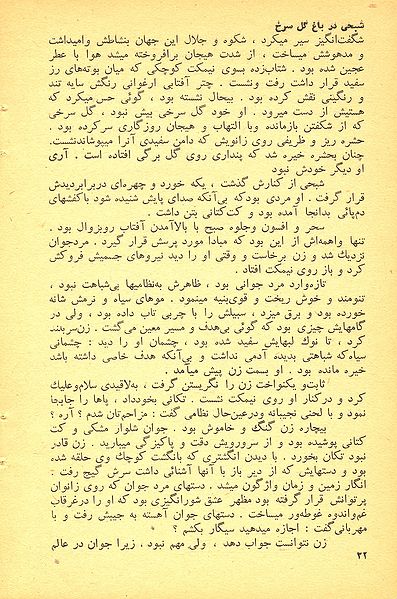 شبحی در باغ گل سرخ
شگفت‌انگیز سیر میکرد ، شکوه و جلال این جهان بنشاطش وامیداشت
و مدهوشش میساخت ، از شدت هیجان برافروخته میشد هوا با عطر
عجین شده بود . شتاب‌زده بسوی نیمکت کوچکی که میان بوته‌های رز
سفید قرار داشت رفت ونشست . چتر آفتابی ارغوانی رنگش سایه تند
و رنگینی نقش کرده بود . بیحال نشسته بود ، گوئی حس‌میکرد که
هستیش از دست میرود . او خود گل سرخی بیش نبود ، گل سرخی
که از شکفتن بازمانده وبا التهاب و هیجان روزگاری سرکرده بود .
حشره ریز و ظریفی روی زانویش که دامن سفیدی آنرا میپوشاندنشست.
چنان بحشره خیره شد که پنداری روی گل برگی افتاده است . آری
او دیگر خودش نبود
شبحی از کنارش گذشت ، یکه خورد و چهره‌ای دربرابردیدش
قرار گرفت . او مردی بودکه بی‌آنکه صدای پایش شنیده شود باکفشهای
دم‌پائی بدانجا آمده بود و کت‌کتانی بتن داشت .
سحر و افسون وجلوه صبح با بالاآمدن آفتاب روبزوال بود .
تنها واهمه‌اش از این بود که مبادا مورد پرسش قرار گیرد . مردجوان
نزدیك شد و زن برخاست و وقتی او را دید نیروهای جسمیش فروکش
کرد و باز روی نیمکت افتاد .
تازه‌وارد مرد جوانی بود ، ظاهرش به‌نظامیها بی‌شباهت نبود ،
تنومند و خوش ریخت و قوی‌بنیه مینمود . موهای سیاه و نرمش شانه
خورده بود و برق میزد ، سبیلش را با چربی تاب داده بود ، ولی در
گامهایش چیزی بود که گوئی بی‌هدف و مسیر معین می‌گشت . زن‌سربلند
کرد ، تا نوك لبهایش سفید شده بود ، چشمان او را دید : چشمانی
سیاه‌که شباهتی بدیده آدمی نداشت و بی‌آنکه هدف خاصی داشته باشد
خیره مانده بود . او بسمت زن پیش میآمد .
ثابت‌و یکنواخت زن را نگریستن گرفت ، به‌لاقیدی سلام‌وعلیك
کرد و درکنار او روی نیمکت نشست . تکانی بخودداد ، پاها را جابجا
نمود و با لحنی نجیبانه ودرعین‌حال نظامی گفت : مزاحم‌تان شدم ؟ آره ؟
بیچاره زن گنگ و خاموش بود . جوان شلوار مشکی و کت
کتانی پوشیده بود و از سرورویش دقت و پاکیزگی میبارید . زن قادر
نبود تکان بخورد . با دیدن انگشتری که بانگشت کوچك وی حلقه شده
بود و دستهایش که از دیر باز با آنها آشنائی داشت سرش گیج رفت :
انگار زمین و زمان واژگون میشد . دستهای مرد جوان که روی زانوان
پرتوانش قرار گرفته بود مظهر عشق شورانگیزی بود که او را درغرقاب
غم‌واندوه غوطه‌ور میساخت . دستهای جوان آهسته به جیبش رفت و با
مهربانی‌گفت : اجازه میدهید سیگار بکشم ؟
زن نتوانست جواب دهد ، ولی مهم نبود ، زیرا جوان در عالم
۳۲